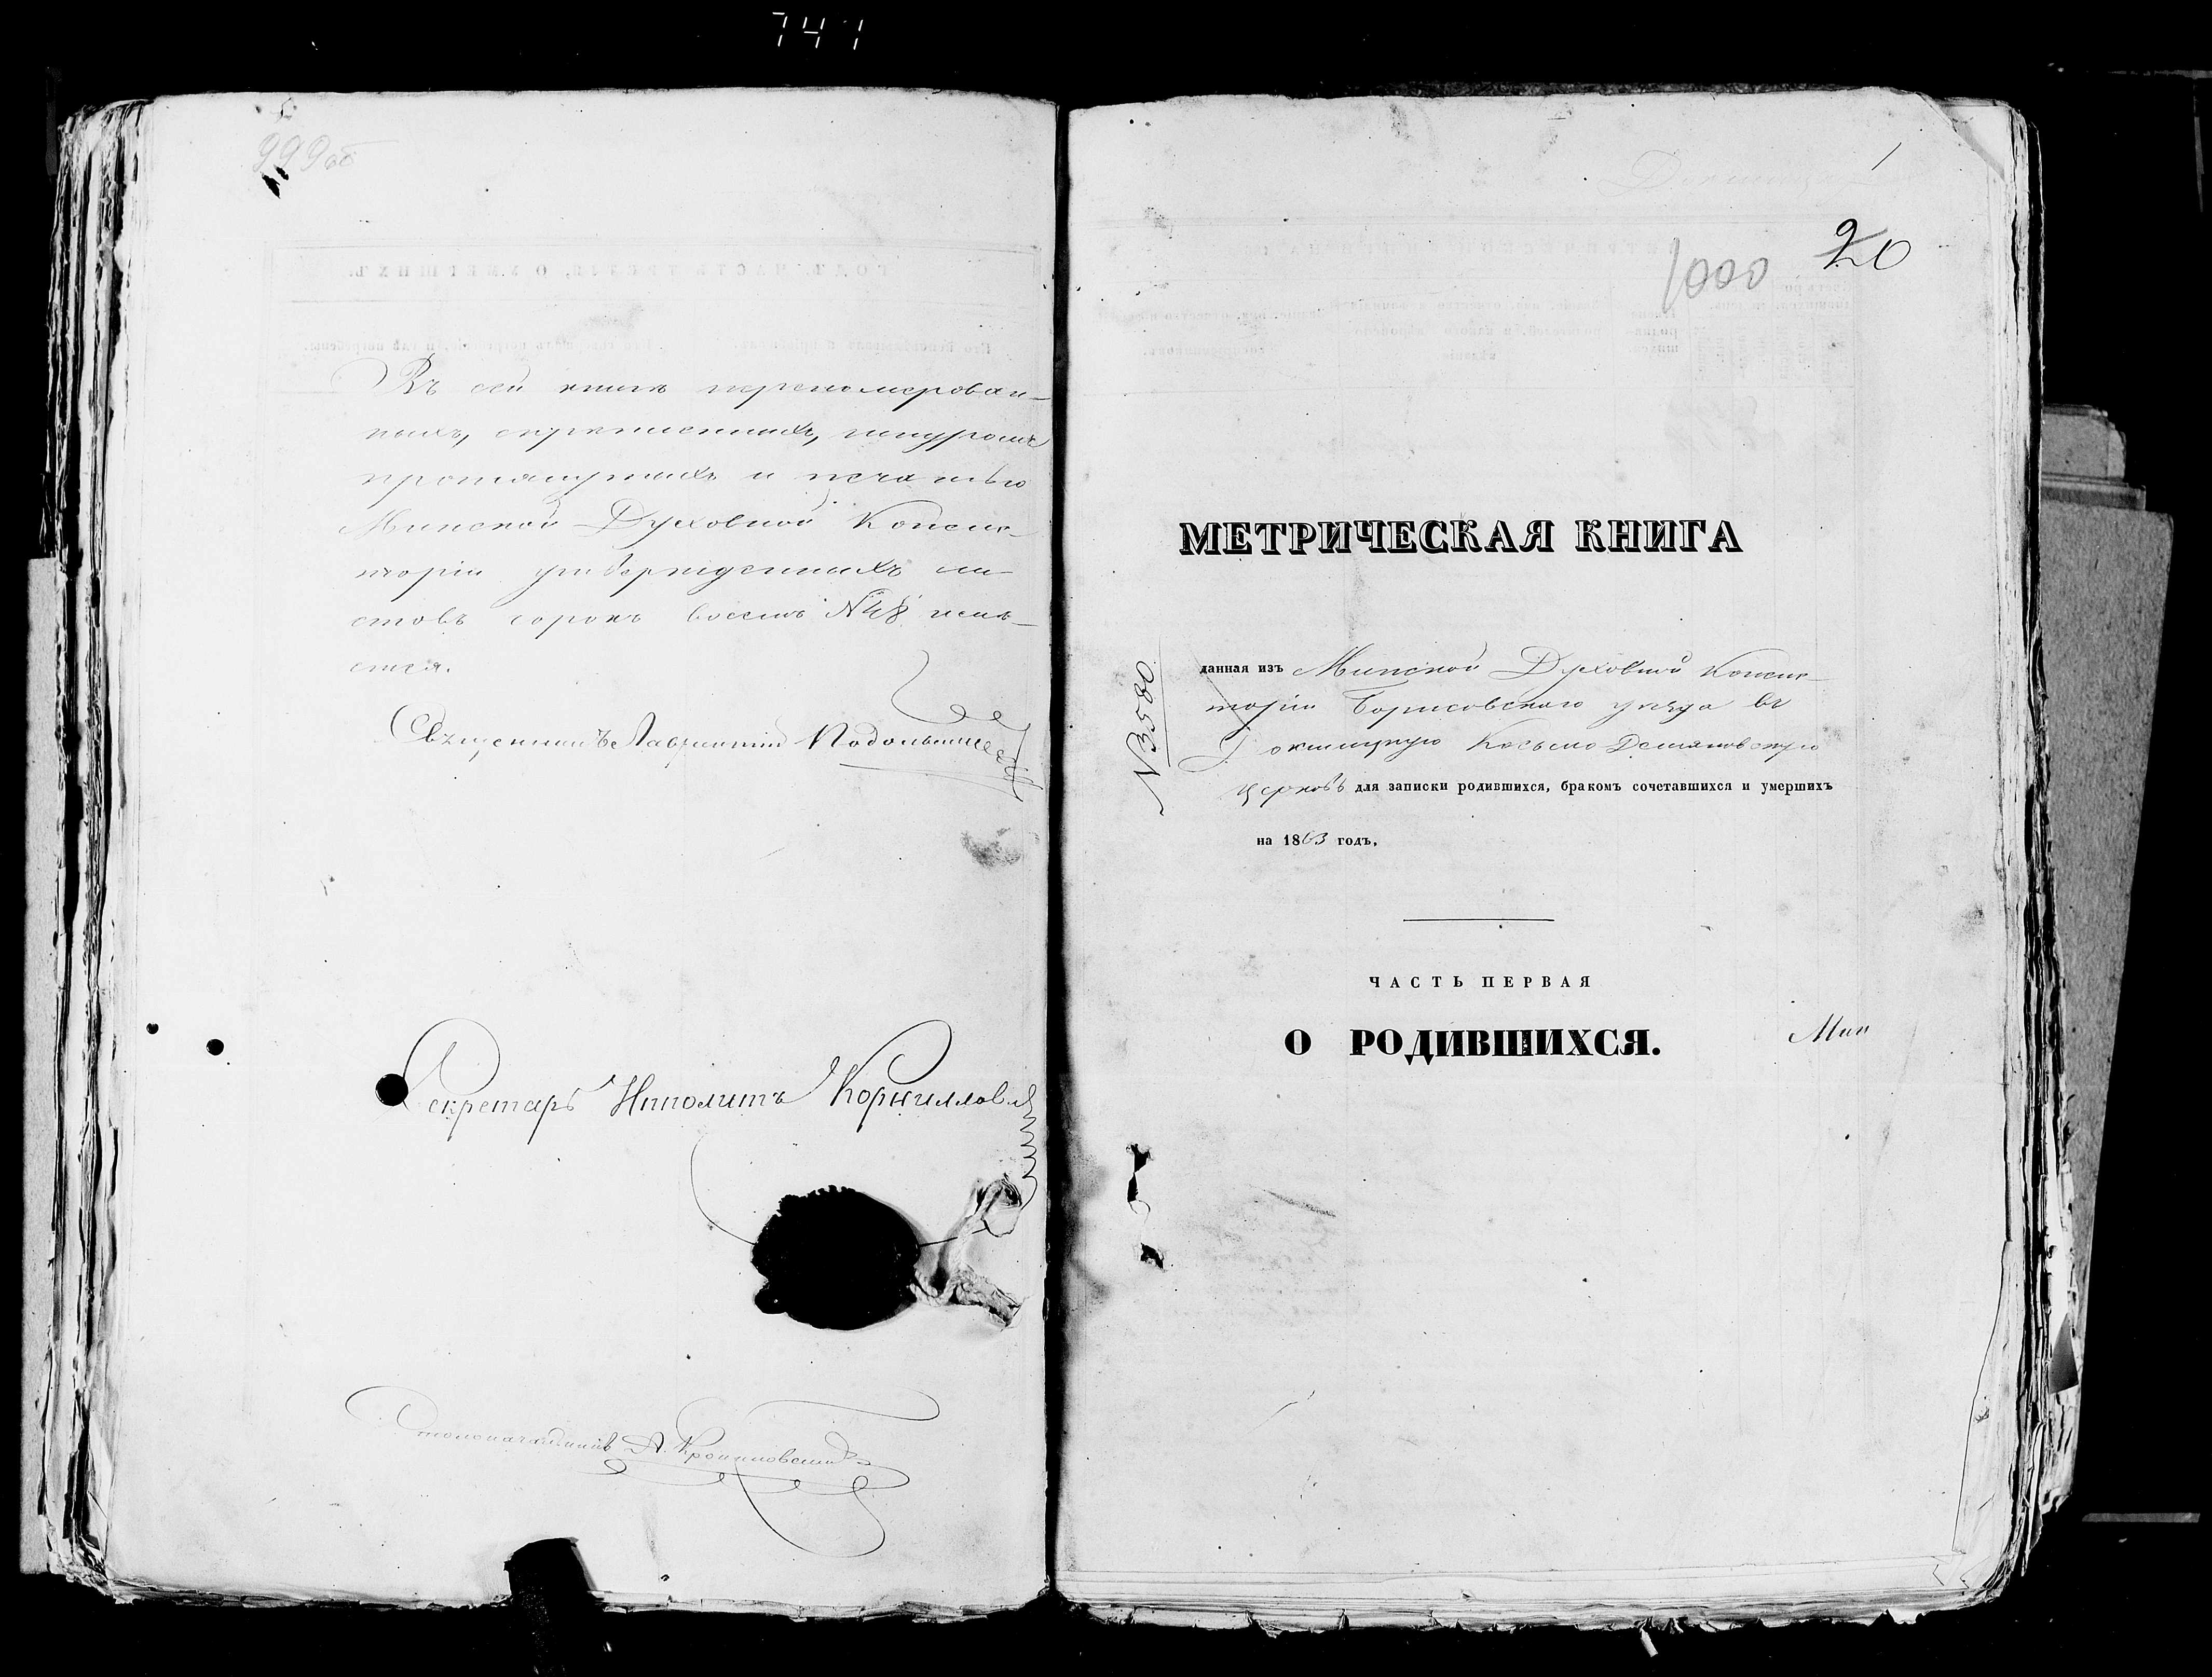 747
999об
Въ сей книгѣ перенумерован-
ныхъ, скрѣпленныхъ, шнуромъ
протянутыхъ и печатью
Минской Духовной Консис-
торіи утвержденныхъ ли-
стовъ сорокъ восемь №48 имѣ-
ется.
Священникъ Лаврентій
Секретарь Ипполитъ Корнилловъ
Столоначальникъ А.
1
1000 20
МЕТРИЧЕСКАЯ КНИГА
№3580
данная изъ Минской Духовной Консис-
торіи Борисовскаго уѣзда въ
Докшицкую Косьмо Демяновскую
церковь для записки родившихся, бракомъ сочетавшихся и умершихъ
на 1863 годъ.
ЧАСТЬ ПЕРВАЯ
О РОДИВШИХСЯ.
Мин